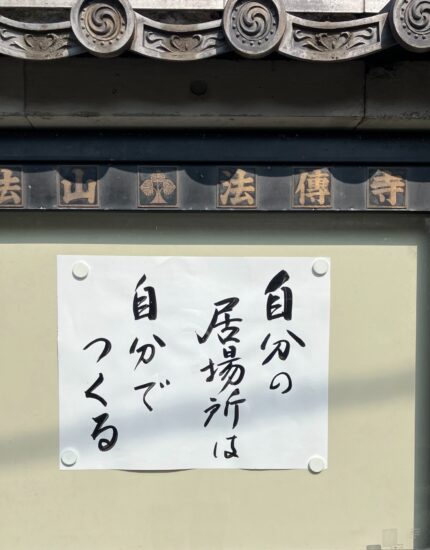 法山
法傳寺
自分の
居場所は
自分で
つくる